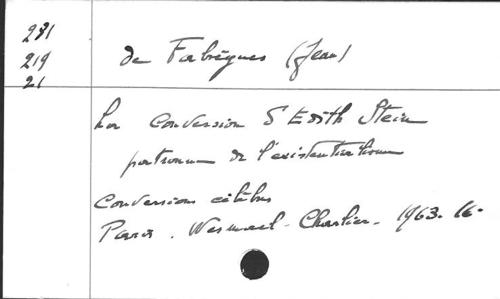 231
219
21
de Fabrègues (Jean)
La conversion d'Edith Stein
patronne de l'existentialisme
Conversions célèbres
Paris. Wesmael-Charlier. 1963. 16.